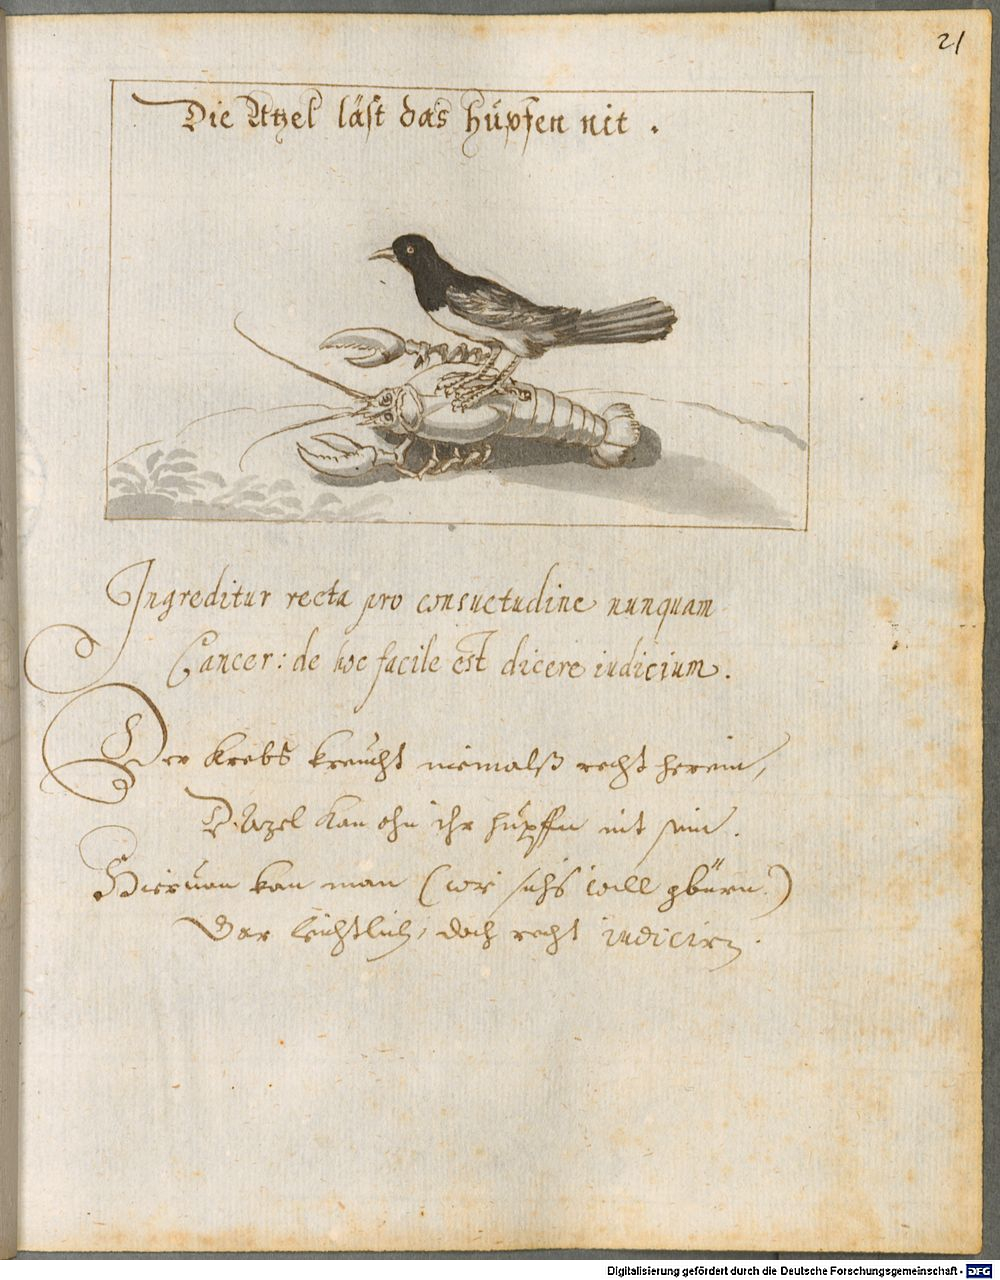 21
Die Atzel läst das hüpfen nit.
Ingreditur recta pro consuetudine nunquam
Cancer: de hoc facile est dicere iudicium.
Der Krebs kreücht niemalß recht herein,
D'Atzel kan ohn ihr hüpffen nit sein.
Hieruon kan man (wie sichs will gbürn.)
Gar leichtlich, doch recht iudicirn.
Digitalisierung gefördert durch die Deutsche Forschungsgemeinschaft - DFG